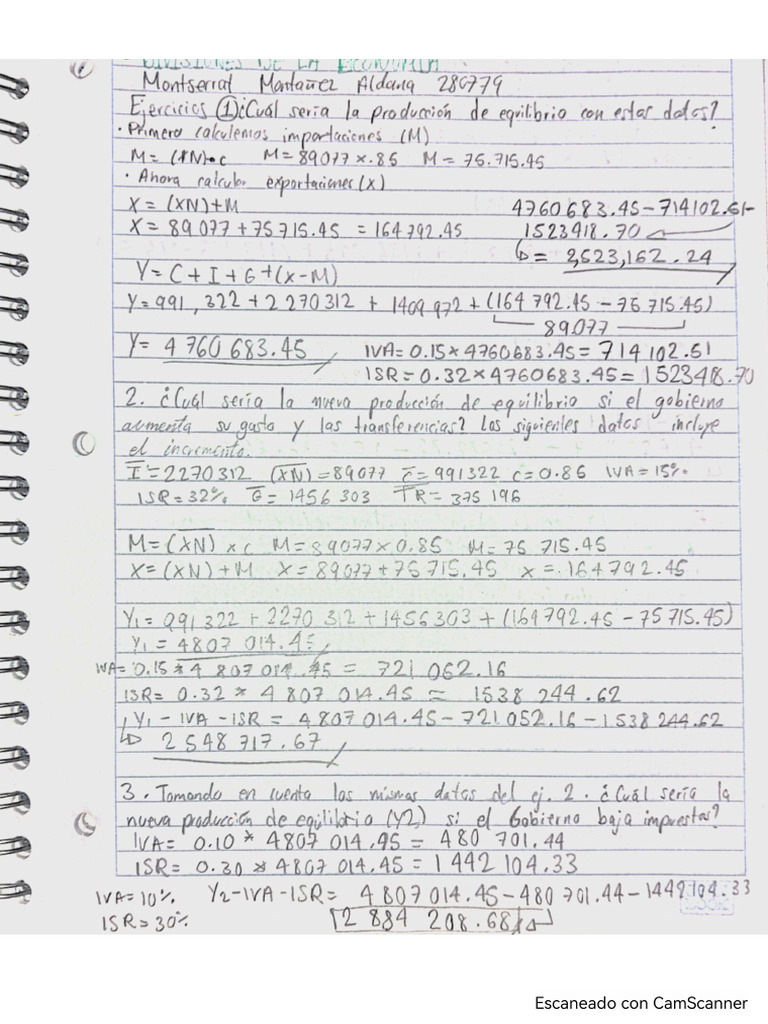 DIVISIONES DE LA ECONOMIA
Montserrat Montañez Aldana 286779
Ejercicios ① ¿Cuál sería la producción de equilibrio con estos datos?
• Primero calculemos importaciones (M)
M = (XN)•c M = 89077 x .85 M = 75.715.45
• Ahora calcular exportaciones (X)
X = (XN) + M
X = 89077 + 75715.45 = 164792.45
4760683.45 - 714102.51-
1523418.70
= 2,523,162.24
Y = C + I + G + (X - M)
Y = 991,322 + 2270312 + 1409972 + (164792.45 - 75715.45)
89077
Y = 4760683.45
IVA = 0.15 * 4760683.45 = 714102.51
ISR = 0.32 * 4760683.45 = 1523418.70
2. ¿Cuál sería la nueva producción de equilibrio si el gobierno
aumenta su gasto y las transferencias? Los siguientes datos incluye
el incremento.
I = 2270312 (XN) = 89077 c = 991322 c = 0.86 IVA = 15%
ISR = 32% G = 1456303 TR = 375196
M = (XN) x c M = 89077 x 0.85 M = 75715.45
X = (XN) + M X = 89077 + 75715.45 x = 164792.45
Y1 = 991322 + 2270312 + 1456303 + (164792.45 - 75715.45)
Y1 = 4807014.45
IVA = 0.15 * 4807014.45 = 721052.16
ISR = 0.32 * 4807014.45 = 1538244.62
Y1 - IVA - ISR = 4807014.45 - 721052.16 - 1538244.62
2548717.67
3. Tomando en cuenta los mismos datos del ej. 2. ¿Cuál sería la
nueva producción de equilibrio (Y2) si el Gobierno baja impuestos?
IVA = 0.10 * 4807014.45 = 480701.44
ISR = 0.30 * 4807014.45 = 1442104.33
IVA = 10% Y2 - IVA - ISR = 4807014.45 - 480701.44 - 1442104.33
ISR = 30% 2884208.68
Escaneado con CamScanner